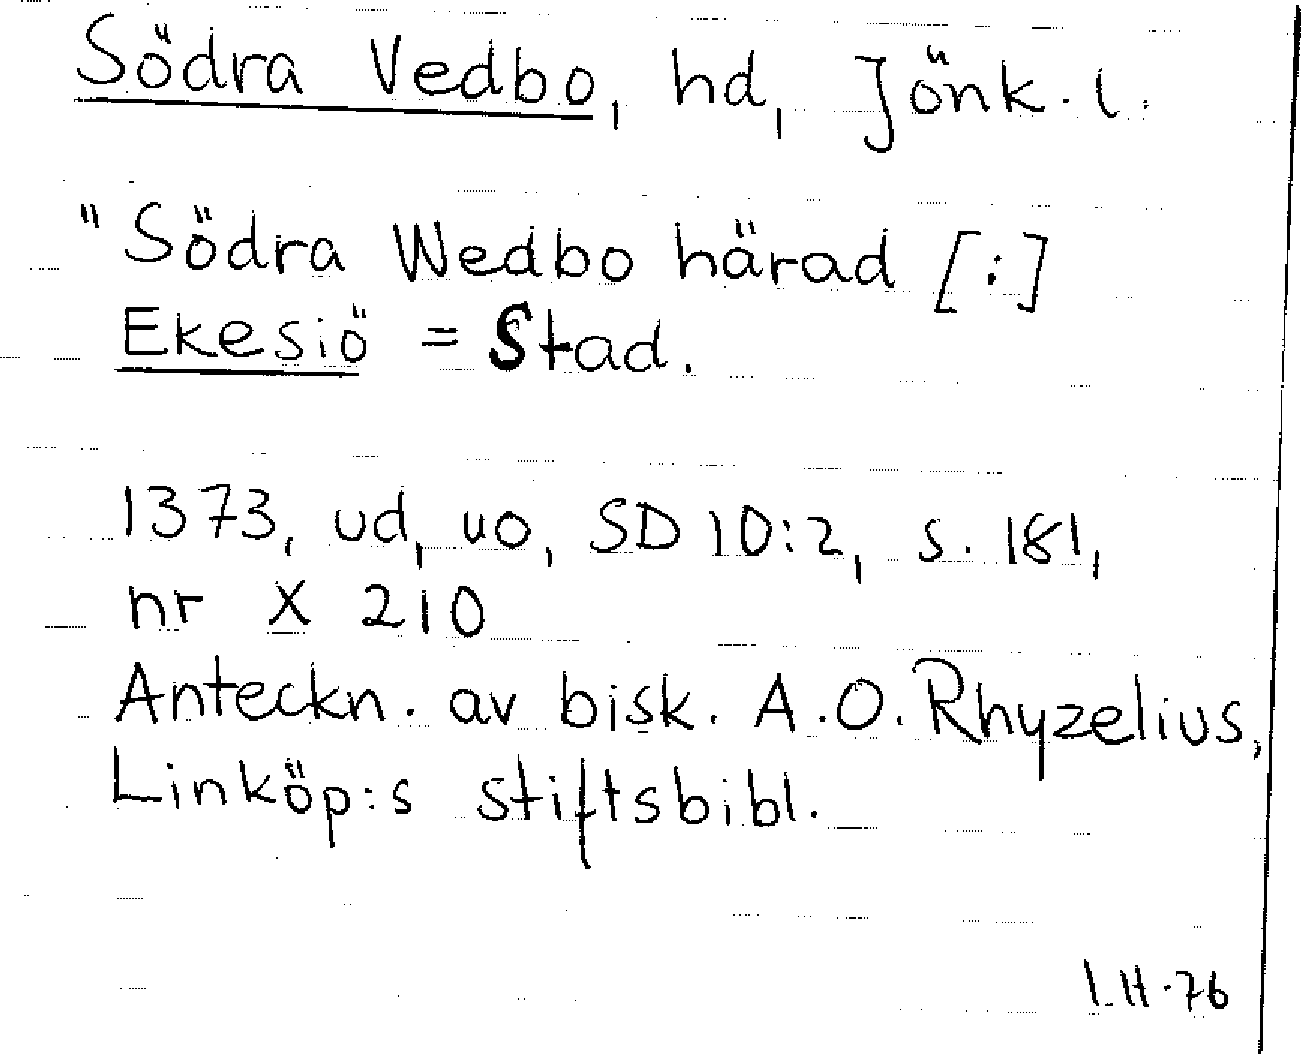 Södra Vedbo, hd, Jönk. l.
"Södra Wedbo härad [:]
Ekesiö = Stad.
1373, ud, uo, SD 10:2, s. 181,
nr X 210
Anteckn. av bisk. A.O. Rhyzelius,
Linköp:s stiftsbibl.
LH.76